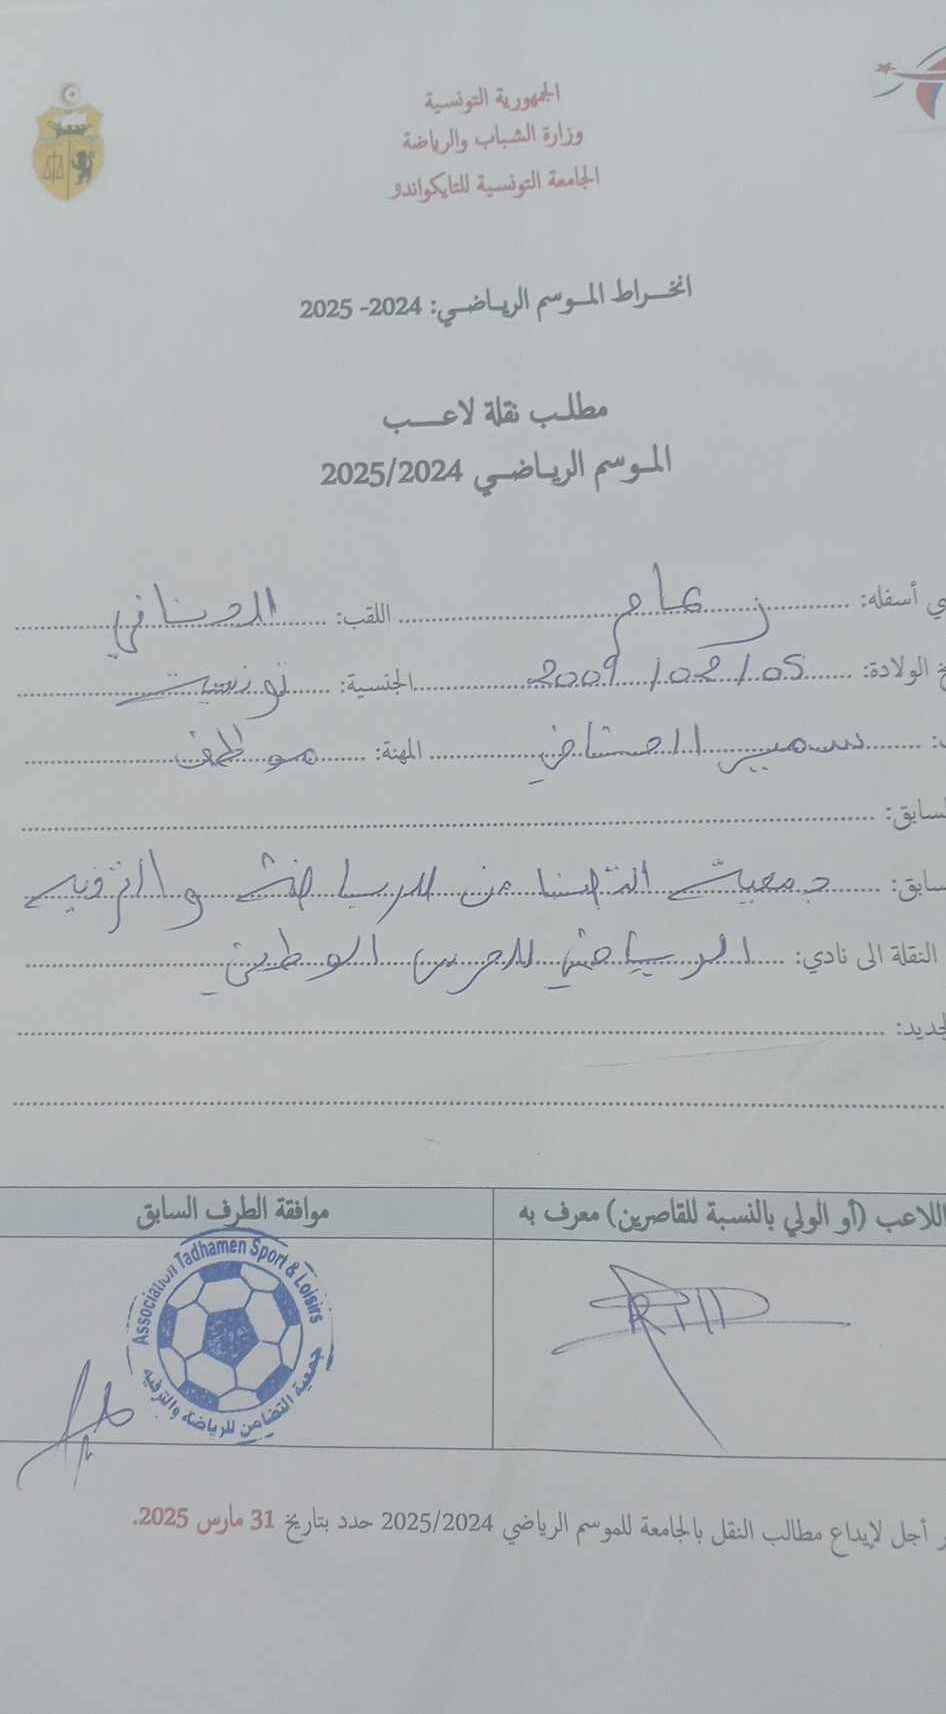 الجمهورية التونسية
وزارة الشباب والرياضة
الجامعة التونسية للتايكواندو
انخـراط المـوسم الريـاضـي: 2024- 2025
مطلـب نقلة لاعـــب
المـوسم الريـاضـي 2025/2024
ي أسفله: اللقب:
خ الولادة: 2009/02/05 الجنسية: تونسية
سمير المهنة: موظف
لسابق:
سابق: جمعية التضامن للرياضة والترفيه
النقلة الى نادي: الرياضي للحرس الوطني
لجديد:
اللاعب (أو الولي بالنسبة للقاصرين) معرف به موافقة الطرف السابق
Association Tadhamen Sport & Loisirs
جمعية التضامن للرياضة والترفيه
ر أجل لإيداع مطالب النقل بالجامعة للموسم الرياضي 2025/2024 حدد بتاريخ 31 مارس 2025.